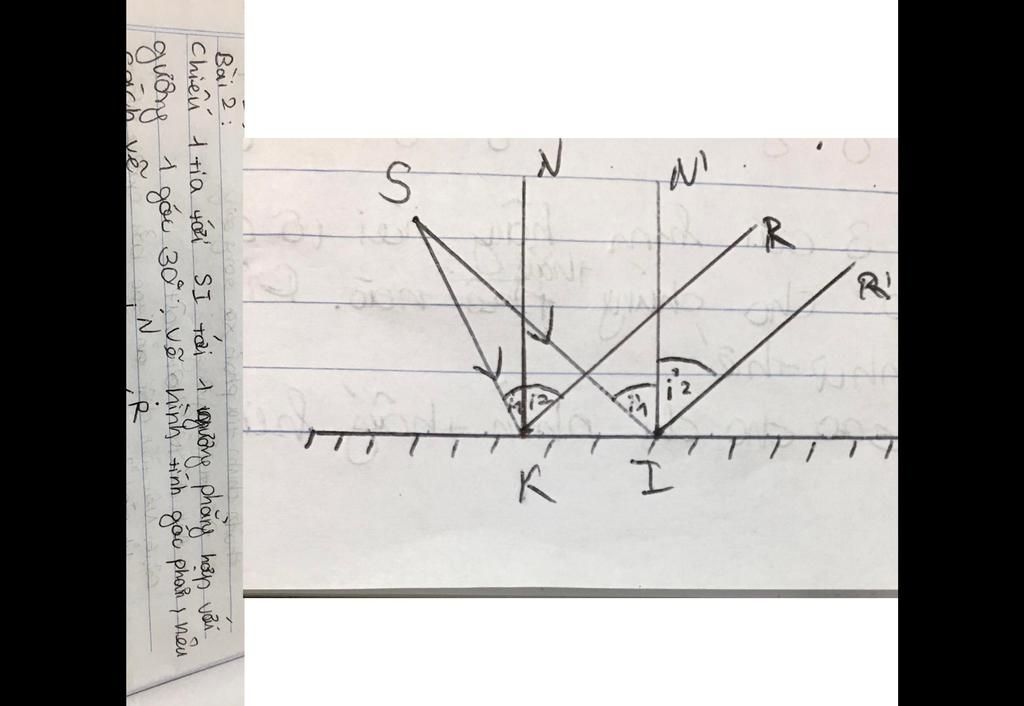 Bài 2:
Chiếu 1 tia tới SI tới 1 gương phẳng hợp với
gương 1 góc 30° vẽ hình tính góc phản, nêu
cách vẽ
N
R
S
N
N'
R
R'
i1
i2
i'1
i'2
K
I